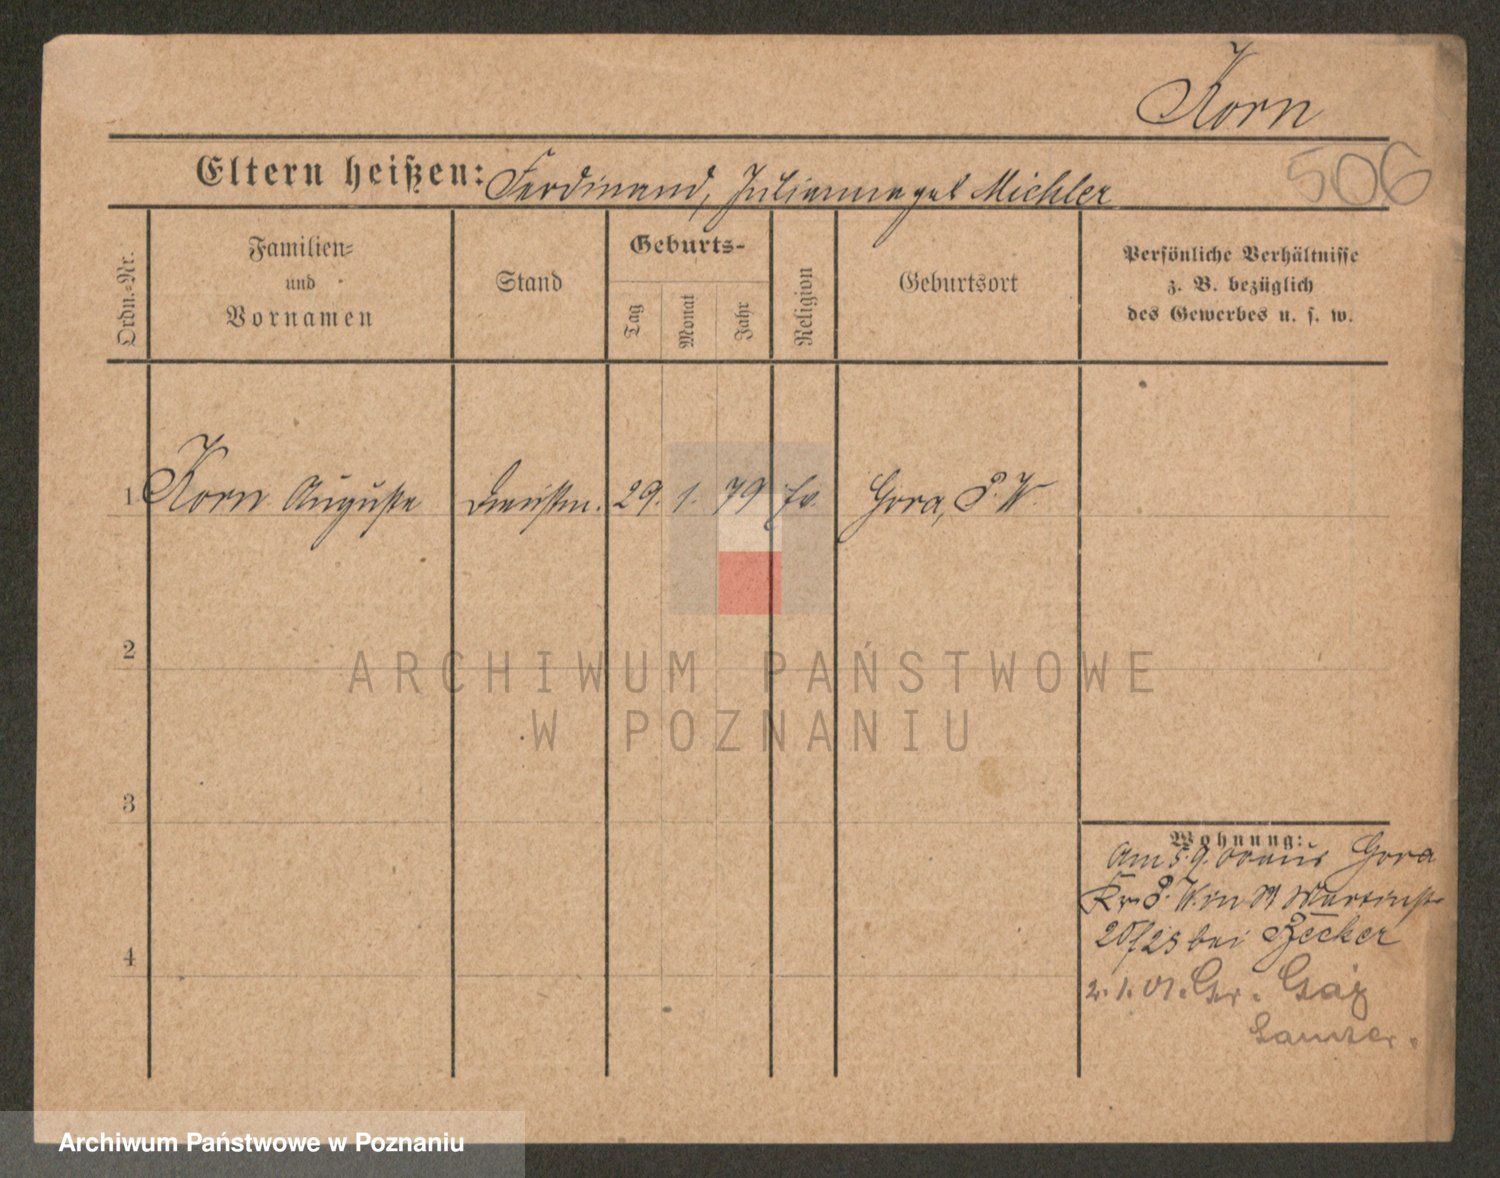 Korn
506
Eltern heißen: Ferdinand, Julianna geb Michler
Ordn.-Nr.
Familien-
und
Vornamen
Stand
Geburts-
Tag
Monat
Jahr
Religion
Geburtsort
Persönliche Verhältnisse
z. B. bezüglich
des Gewerbes u. s. w.
1 Korn Auguste Dienstm. 29. 1. 79 ev. Gora, P. W.
2
ARCHIWUM PAŃSTWOWE
W POZNANIU
3
Wohnung:
Am 5.9. 00 aus Gora
Kr. W. in St Martinstr
20/23 bei Becker
2. 1. 01. Gr. Gaj
4
Samter.
Archiwum Państwowe w Poznaniu